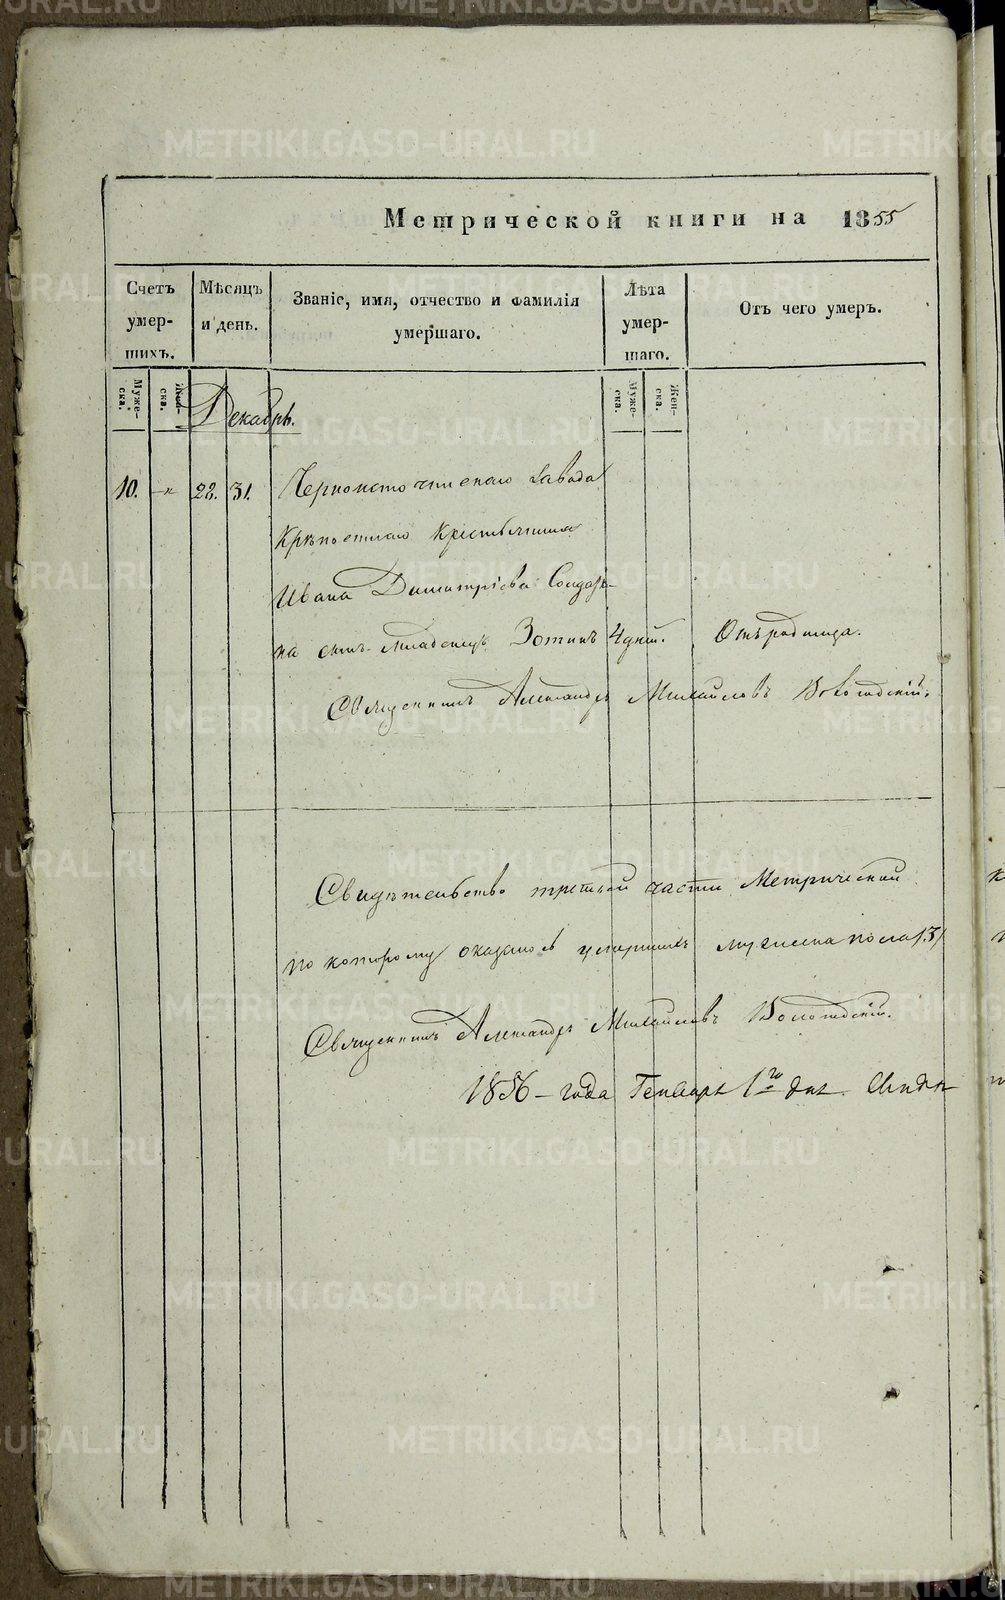 Метрической книги на 1855
Счетъ умер- шихъ.
Мѣсяцъ и день.
Званіе, имя, отчество и фамилія умершаго.
Лѣта умер- шаго.
Отъ чего умеръ.
Муже- ска.
Жен- ска.
Муже- ска.
Жен- ска.
Декабрь.
10. -"- 28. 31. Черноисточинскаго завода
Крѣпостнаго Крестьянина
Ивана Димитріева
на сынъ младенецъ Зотикъ 4 дній. Отъ родимца.
Священникъ Александръ Михайловъ Вологодскій.
Свидѣтельство третьей части Метрической
по которому оказалось умершихъ мужеска пола /3/
Священникъ Александръ Михайловъ Вологодскій.
1856 - года Генваря 1го дня.
METRIKI.GASO-URAL.RU